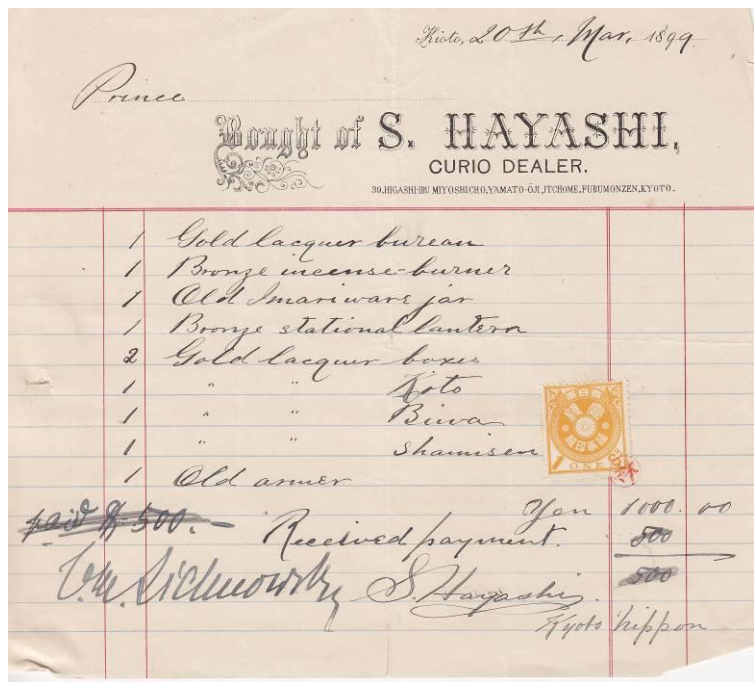 Kioto, 20th, Mar, 1899
Prince
Bought of S. HAYASHI,
CURIO DEALER.
39, HIGASHI-IRU MIYOSHICHO, YAMATO-OJI, ITCHOME, FURUMONZEN, KYOTO.
1 Gold lacquer bureau
1 Bronze incense-burner
1 Old Imari ware jar
1 Bronze stational lantern
2 Gold lacquer boxes
1 " " Koto
1 " " Biwa
1 " " Shamisen
1 ONE
1 Old armer
Yen 1000.00
paid 500.-
Received payment. 500
500
Lichnowsky S. Hayashi.
Kyoto Nippon